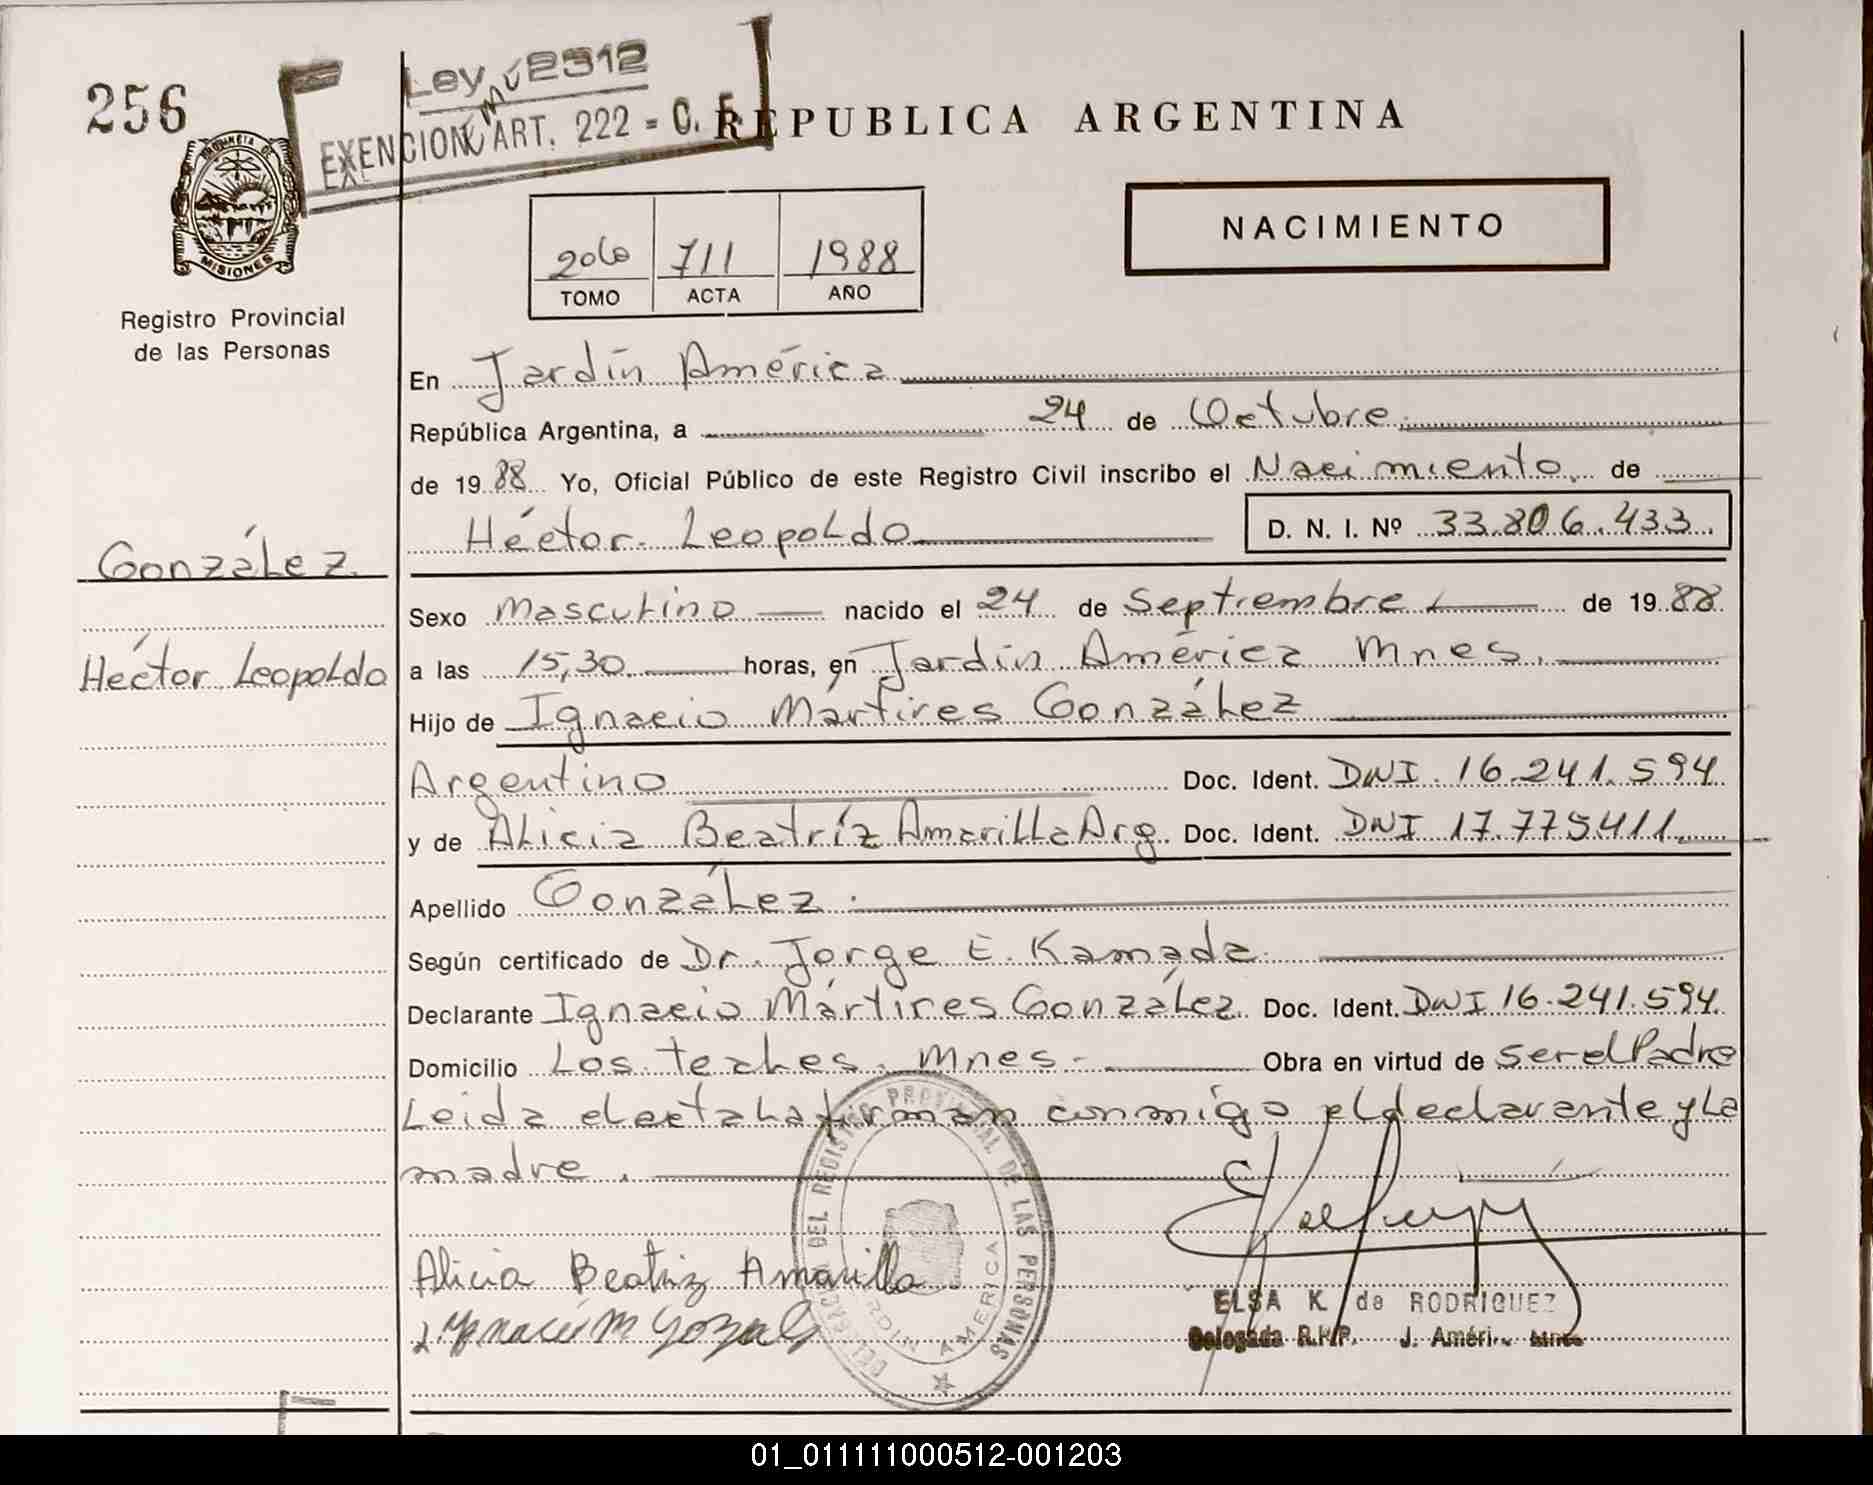 256
Ley nº 2312
EXENCION ART. 222 - C. F.
REPUBLICA ARGENTINA
PROVINCIA DE
MISIONES
Registro Provincial
de las Personas
NACIMIENTO
2do 711 1988
TOMO ACTA AÑO
En Jardín América
República Argentina, a 24 de Octubre.
de 1988 Yo, Oficial Público de este Registro Civil inscribo el Nacimiento de
Héctor Leopoldo D. N. I. Nº 33.806.433.
González
Héctor Leopoldo
Sexo Masculino nacido el 24 de Septiembre de 1988
a las 15,30 horas, en Jardín América Mnes.
Hijo de Ignacio Mártires González
Argentino Doc. Ident. DNI. 16.241.594
y de Alicia Beatríz Amarilla Arg. Doc. Ident. DNI 17.775411
Apellido González.
Según certificado de Dr. Jorge E. Kamada
Declarante Ignacio Mártires González. Doc. Ident. DNI 16.241.594.
Domicilio Los teales. Mnes. Obra en virtud de ser el Padre
Leida el acta la firman conmigo el declarante y la
madre.
DELEGACION DEL REGISTRO PROVINCIAL DE LAS PERSONAS
JARDIN AMERICA
Alicia Beatriz Amarilla
ELSA K. de RODRIGUEZ
Delegada R.P.P. J. Améri
01_011111000512-001203